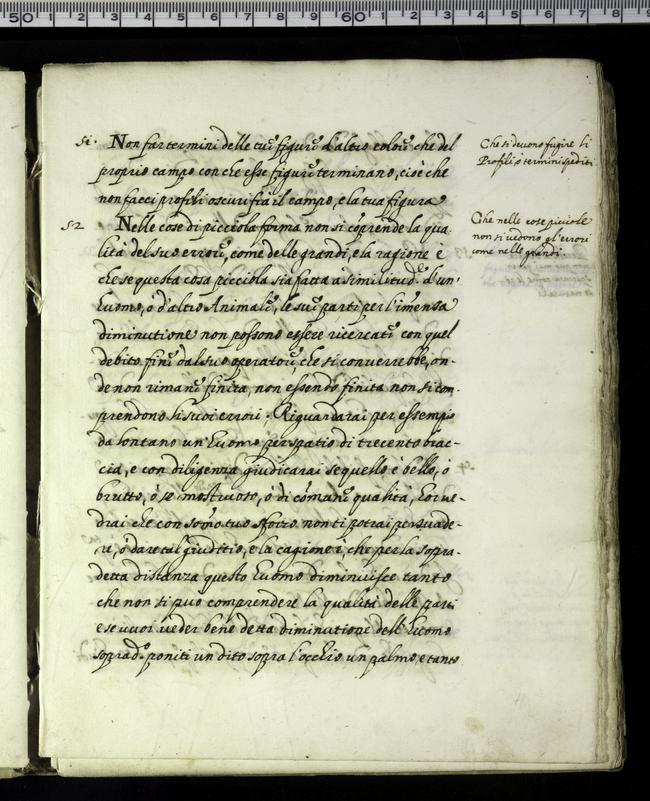 51. Non far termini delle tue figure d'altro colore che del
proprio campo con che esse figure terminano, cioè che
non facci profili oscuri fra il campo, e la tua figura
52 Nelle cose di picciola forma non si cōprende la qua
lità del suo errore, come delle grandi, e la ragione è
che se questa cosa picciola sia fatta à similitud.e d'un'
huomo, ò d'altro Animale, le sue parti per l'imēnsa
diminutione non possono essere ricercate con quel
debito fine dal suo operatore, che si converrebbe, on-
de non rimane finita, non essendo finita non si com
prendono li suoi errori. Riguardarai per essempio
da lontano un'huomo per spatio di trecento brac-
cia, e con diligenza giudicarai se quello è bello, ò
brutto, ò se mostruoso, ò di cōmane qualità, hor ve-
drai che con sōmo tuo sforzo non ti potrai persuade-
re, ò dare tal giuditio, e la cagione è, che per la sopra-
detta distanza questo huomo diminuisce tanto
che non si puo comprendere la qualità delle parti
e se uuoi ueder bene detta diminutione dell'huomo
soprad.o poniti un dito sopra l'occhio un palmo, e tanto
Che si deuono fugire li
Profili, ò termini spediti
Che nelle cose picciole
non si uedono gl'errori
come nelle grandi.